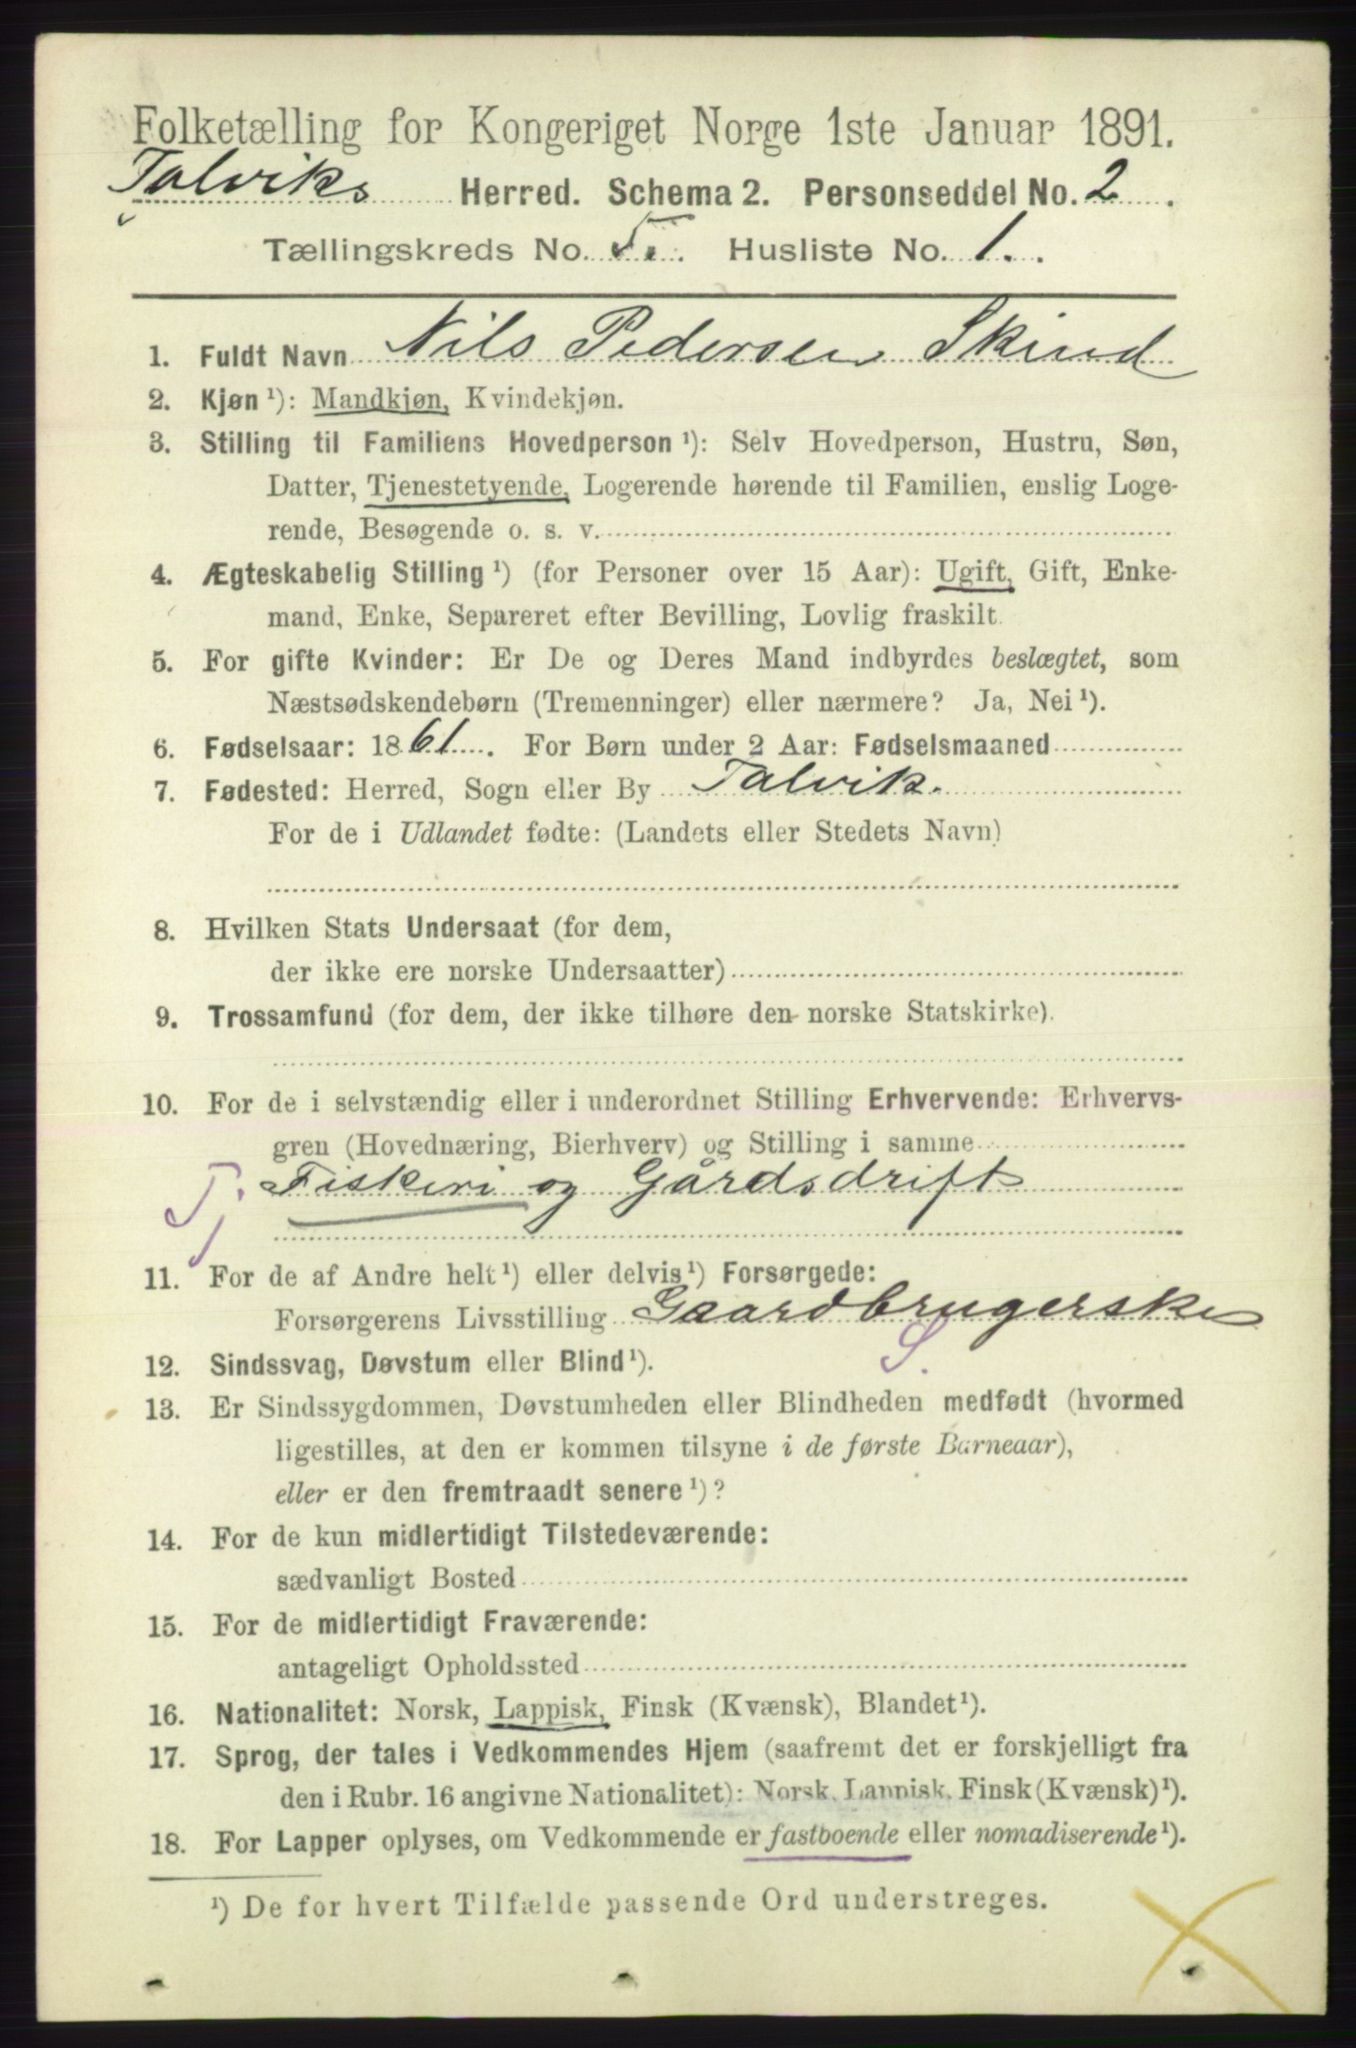 Folketælling for Kongeriget Norge 1ste Januar 1891.
Talviks Herred. Schema 2. Personseddel No. 2.
Tællingskreds No. 5. Husliste No. 1.
1. Fuldt Navn Nils Pedersen Skind
2. Kjøn ¹): Mandkjøn, Kvindekjøn.
3. Stilling til Familiens Hovedperson ¹): Selv Hovedperson, Hustru, Søn,
Datter, Tjenestetyende, Logerende hørende til Familien, enslig Loge-
rende, Besøgende o. s. v.
4. Ægteskabelig Stilling ¹) (for Personer over 15 Aar): Ugift, Gift, Enke-
mand, Enke, Separeret efter Bevilling, Lovlig fraskilt.
5. For gifte Kvinder: Er De og Deres Mand indbyrdes beslægtet, som
Næstsødskendebørn (Tremenninger) eller nærmere? Ja, Nei ¹).
6. Fødselsaar: 1861. For Børn under 2 Aar: Fødselsmaaned
7. Fødested: Herred, Sogn eller By Talvik.
For de i Udlandet fødte: (Landets eller Stedets Navn)
8. Hvilken Stats Undersaat (for dem,
der ikke ere norske Undersaatter)
9. Trossamfund (for dem, der ikke tilhøre den norske Statskirke).
10. For de i selvstændig eller i underordnet Stilling Erhvervende: Erhvervs-
gren (Hovednæring, Bierhverv) og Stilling i samme
Tj Fiskeri og Gårdsdrift
11. For de af Andre helt ¹) eller delvis ¹) Forsørgede:
Forsørgerens Livsstilling Gaardbrugerske
S.
12. Sindssvag, Døvstum eller Blind ¹).
13. Er Sindssygdommen, Døvstumheden eller Blindheden medfødt (hvormed
ligestilles, at den er kommen tilsyne i de første Barneaar),
eller er den fremtraadt senere ¹)?
14. For de kun midlertidigt Tilstedeværende:
sædvanligt Bosted
15. For de midlertidigt Fraværende:
antageligt Opholdssted
16. Nationalitet: Norsk, Lappisk, Finsk (Kvænsk), Blandet ¹).
17. Sprog, der tales i Vedkommendes Hjem (saafremt det er forskjelligt fra
den i Rubr. 16 angivne Nationalitet): Norsk, Lappisk, Finsk (Kvænsk) ¹).
18. For Lapper oplyses, om Vedkommende er fastboende eller nomadiserende ¹).
¹) De for hvert Tilfælde passende Ord understreges.